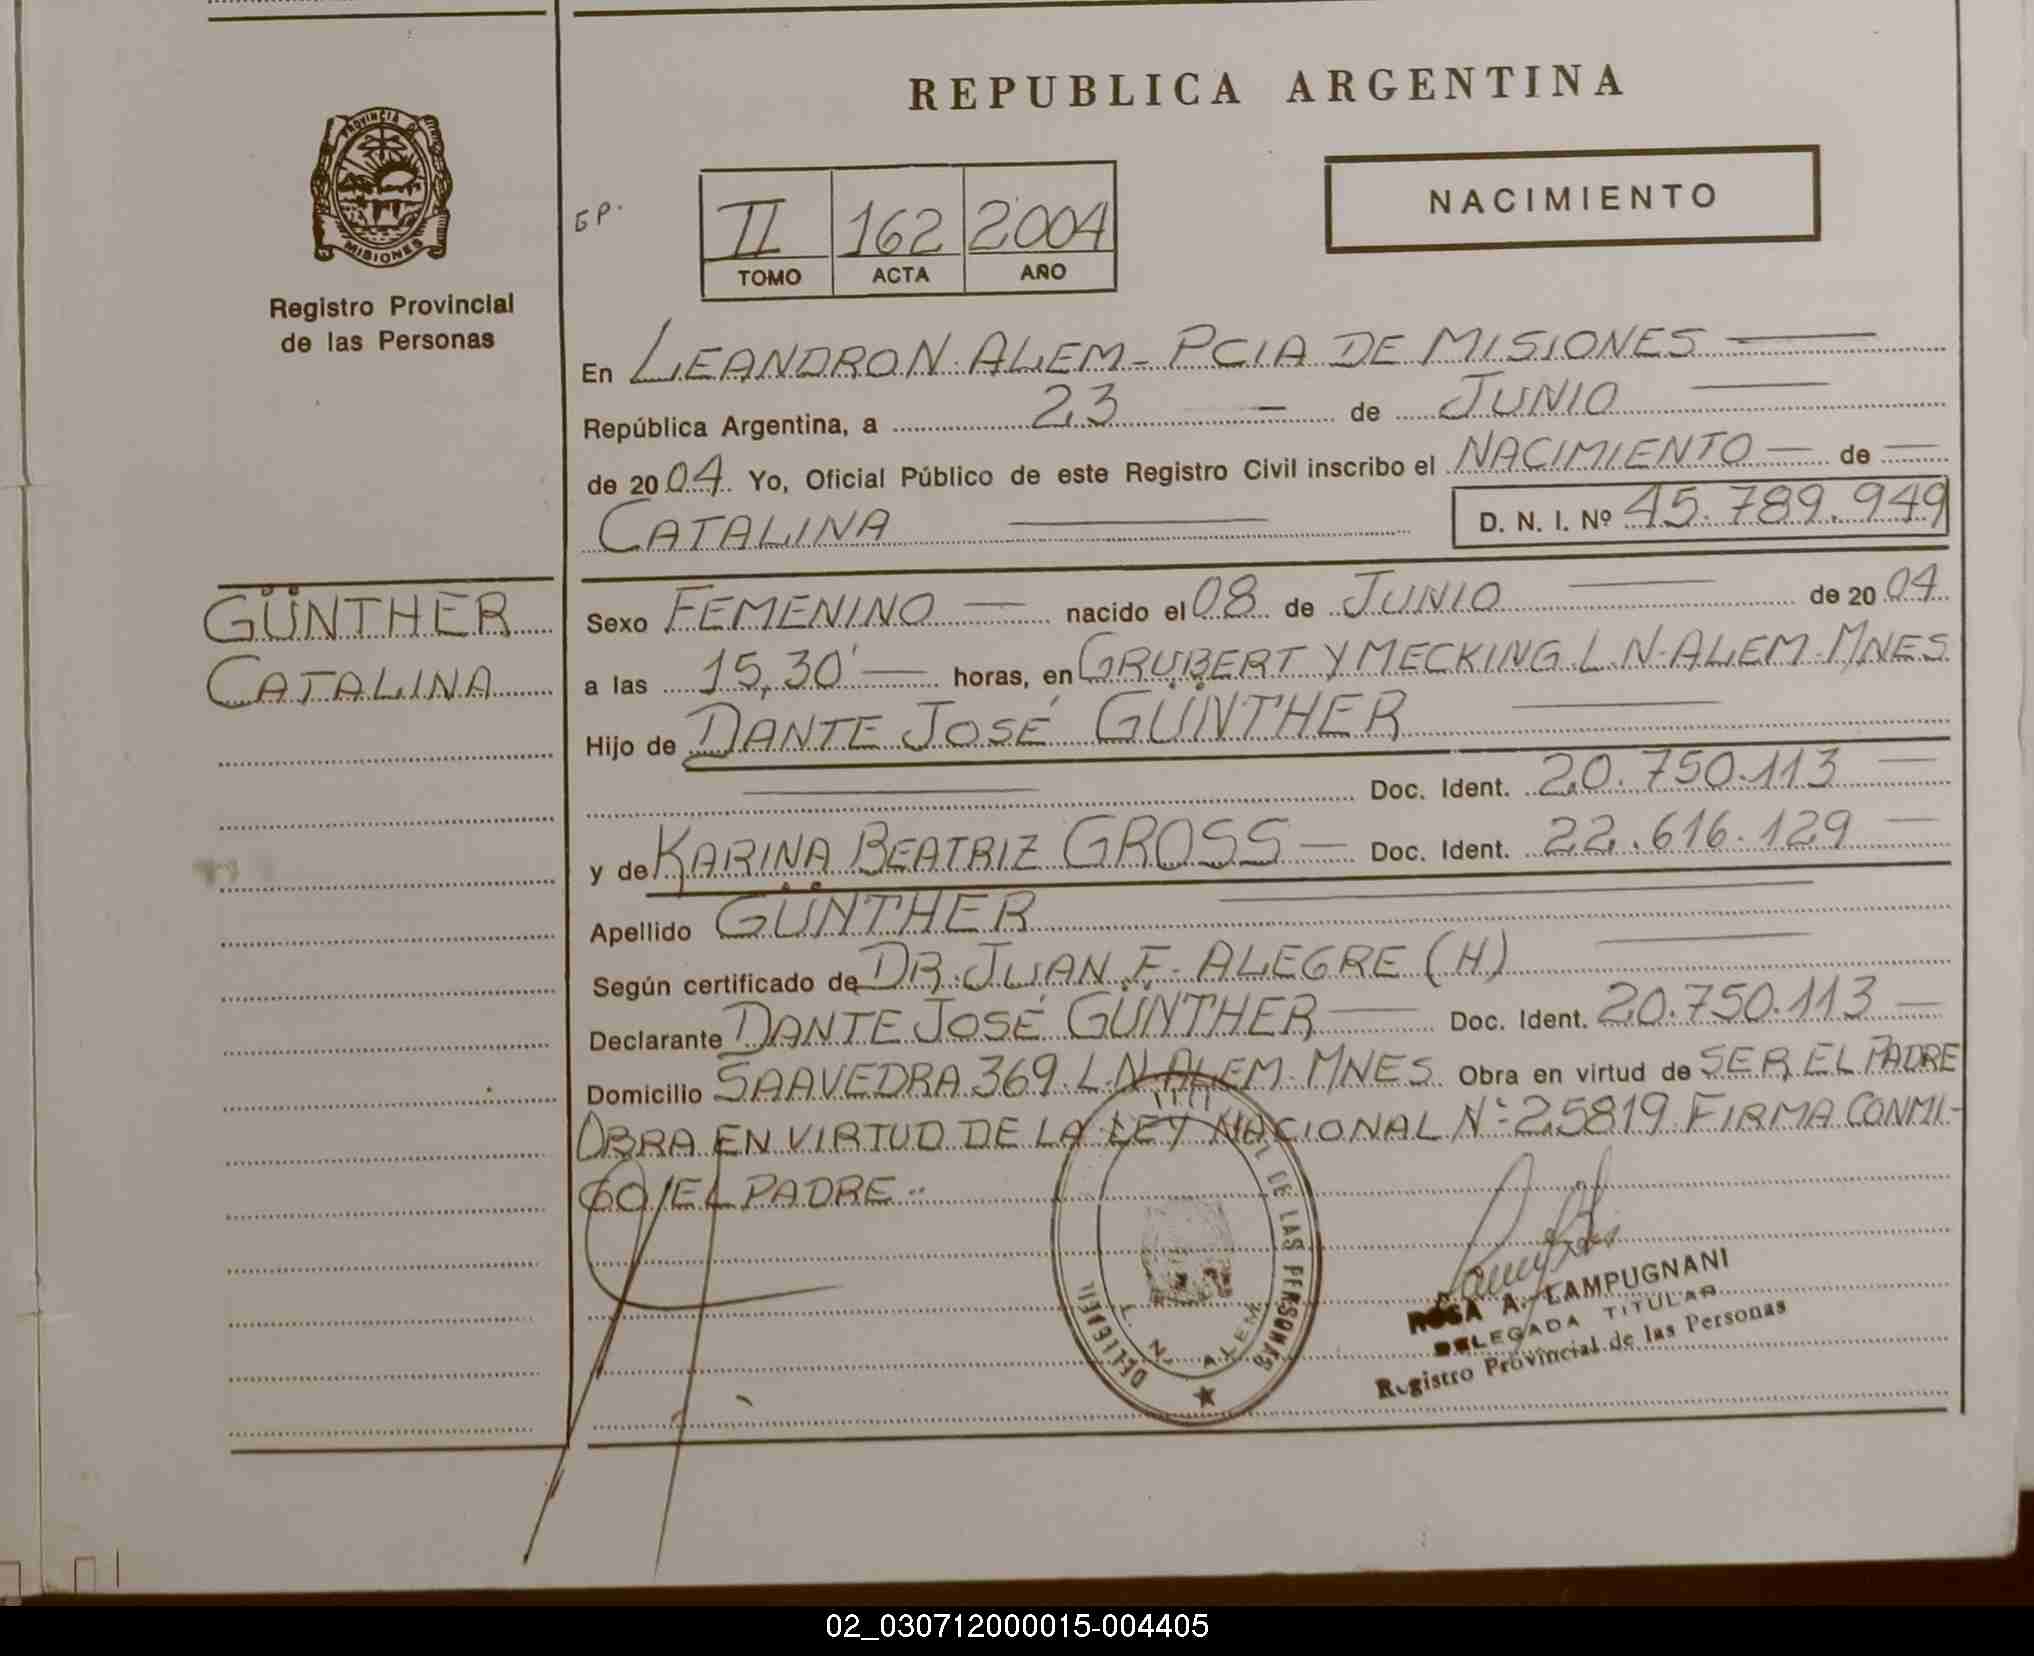 REPUBLICA ARGENTINA
PROVINCIA DE
MISIONES
Registro Provincial
de las Personas
GP.
II 162 2004
TOMO ACTA AÑO
NACIMIENTO
En LEANDRO N. ALEM - PCIA DE MISIONES
República Argentina, a 23 de JUNIO
de 2004. Yo, Oficial Público de este Registro Civil inscribo el NACIMIENTO de
CATALINA D. N. I. Nº 45.789.949
GÜNTHER
CATALINA
Sexo FEMENINO nacido el 08 de JUNIO de 2004
a las 15,30' horas, en GRUBERT Y MECKING L.N. ALEM. MNES
Hijo de DANTE JOSÉ GÜNTHER
Doc. Ident. 20.750.113
y de KARINA BEATRIZ GROSS Doc. Ident. 22.616.129
Apellido GÜNTHER
Según certificado de DR. JUAN F. ALEGRE (H)
Declarante DANTE JOSÉ GÜNTHER Doc. Ident. 20.750.113
Domicilio SAAVEDRA 369. L.N. ALEM. MNES. Obra en virtud de SER EL PADRE
OBRA EN VIRTUD DE LA LEY NACIONAL Nº 25819. FIRMA CONMI-
GO EL PADRE..
DE LAS PERSONAS
L. N. ALEM
ROSA A. LAMPUGNANI
DELEGADA TITULAR
Registro Provincial de las Personas
02_030712000015-004405